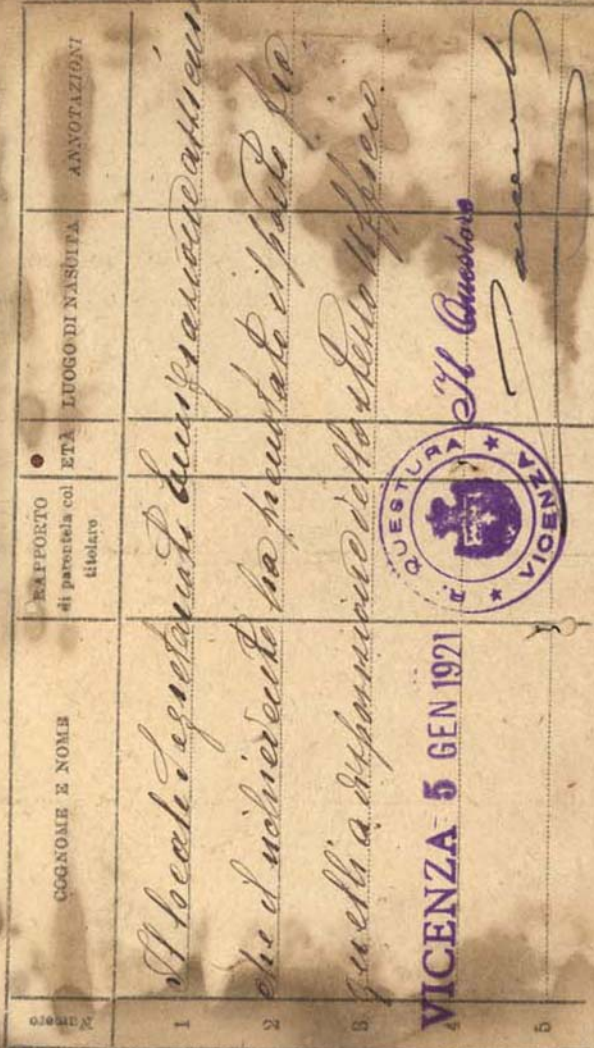 Numero COGNOME E NOME RAPPORTO di parentela col titolare ETÀ LUOGO DI NASCITA ANNOTAZIONI
1 Il locale Segretariato Emigrazione assicura
2 che il richiedente ha prenotato il posto fra
3 quelli a disposizione dello stesso Ufficio
4 VICENZA 5 GEN 1921 Il Questore
R. QUESTURA VICENZA
5